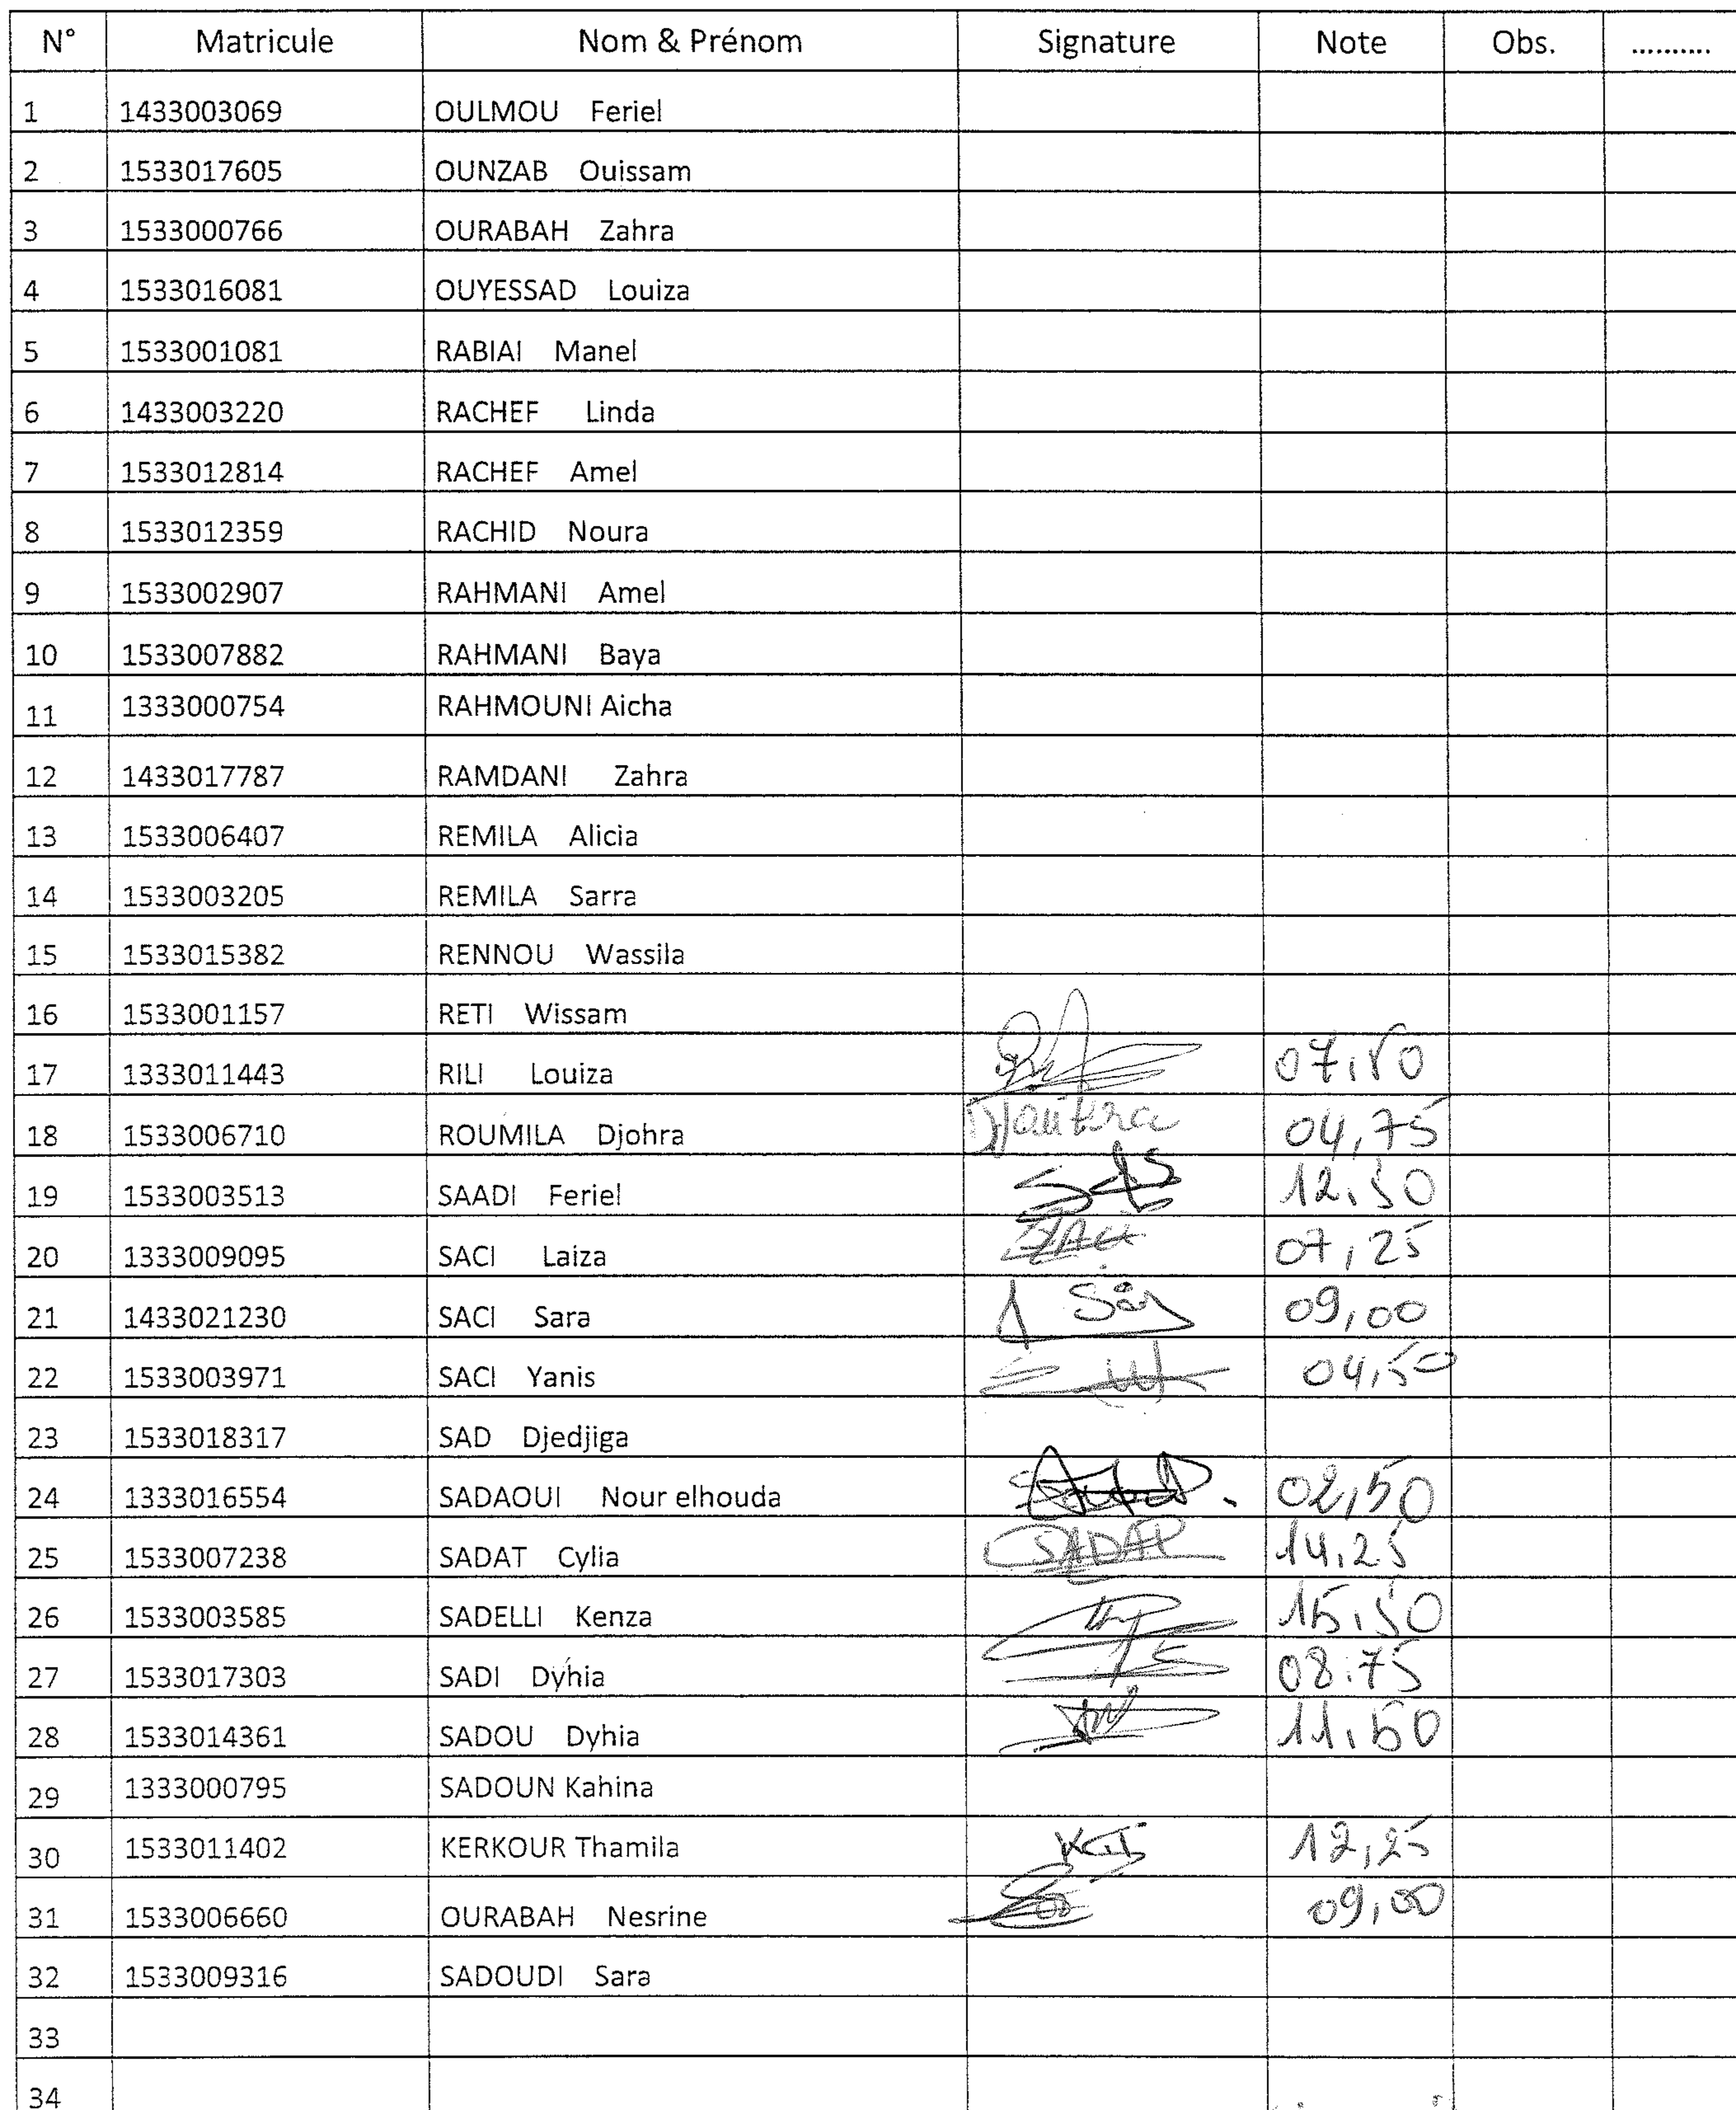 N° Matricule Nom & Prénom Signature Note Obs. ..........
1 1433003069 OULMOU Feriel
2 1533017605 OUNZAB Ouissam
3 1533000766 OURABAH Zahra
4 1533016081 OUYESSAD Louiza
5 1533001081 RABIAI Manel
6 1433003220 RACHEF Linda
7 1533012814 RACHEF Amel
8 1533012359 RACHID Noura
9 1533002907 RAHMANI Amel
10 1533007882 RAHMANI Baya
11 1333000754 RAHMOUNI Aicha
12 1433017787 RAMDANI Zahra
13 1533006407 REMILA Alicia
14 1533003205 REMILA Sarra
15 1533015382 RENNOU Wassila
16 1533001157 RETI Wissam
17 1333011443 RILI Louiza
18 1533006710 ROUMILA Djohra 04,75
19 1533003513 SAADI Feriel 12,50
20 1333009095 SACI Laiza 07,25
21 1433021230 SACI Sara 09,00
22 1533003971 SACI Yanis 04,50
23 1533018317 SAD Djedjiga
24 1333016554 SADAOUI Nour elhouda 02,50
25 1533007238 SADAT Cylia SADAT 14,25
26 1533003585 SADELLI Kenza 15,50
27 1533017303 SADI Dyhia 08.75
28 1533014361 SADOU Dyhia 11,50
29 1333000795 SADOUN Kahina
30 1533011402 KERKOUR Thamila 12,25
31 1533006660 OURABAH Nesrine 09,00
32 1533009316 SADOUDI Sara
33
34